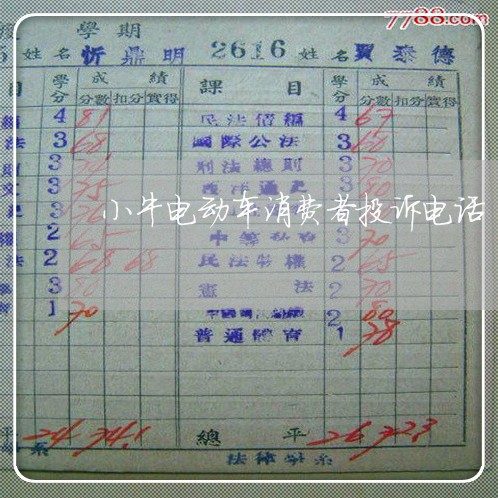 7788.com
學期
5 姓名 忻鼎明 2616 姓名 賈泰德
目 學分 成績 課目 學分 成績
分數 扣分 實得 分數 扣分 實得
4 81 民法債編 4 67
法 3 68 國際公法 3 60
3 刑法總則 3 70
3 75 3 80
小牛电动车消费者投诉电话
2 65 3 70
法 2 68 68 民法物權 2 65
3 80 憲法 2 70
1 70 2 80
普通體育 1 78
平 24 74.1 總平 26 72.3
系 法律學系